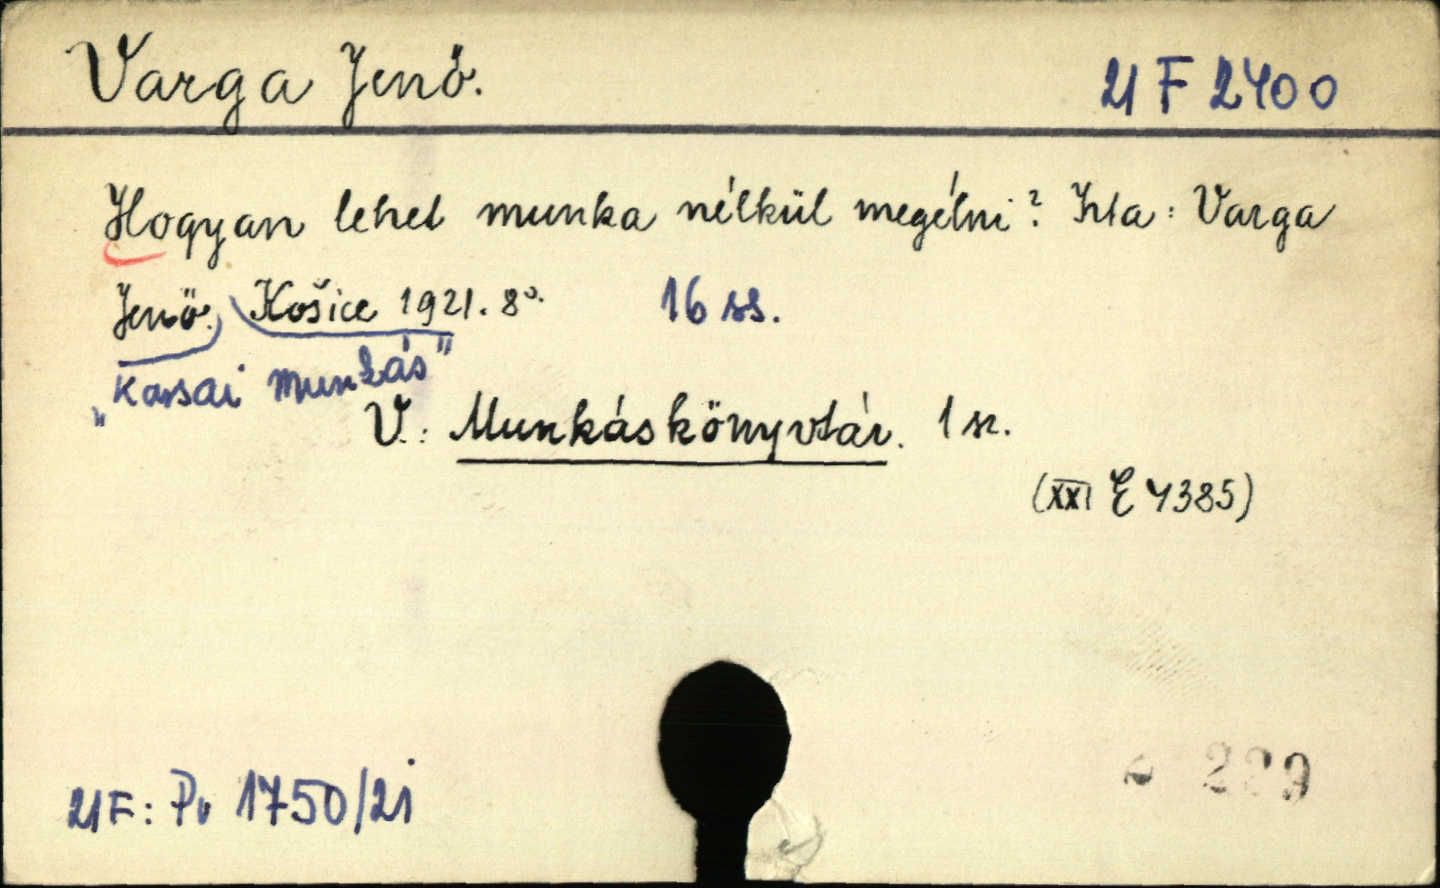 Varga Jenő.
21 F 2400
Hogyan lehet munka nélkül megélni? Irta: Varga
Jenő. Košice 1921. 8°. 16 ss.
"Kassai Munkás"
V.: Munkáskönyvtár. 1 sz.
(XXI E 4385)
21F: Pv 1750/21
229